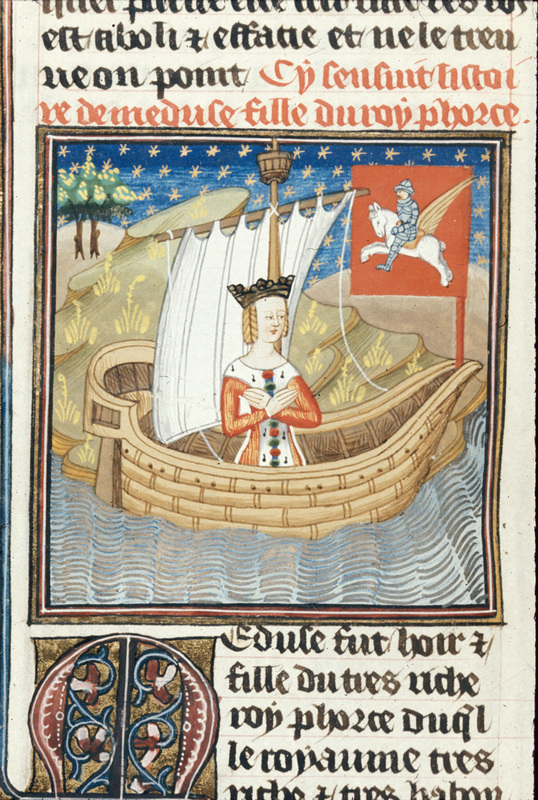 est aboli ⁊ efface et ne le treu
ue on point Cy sensuit listoi
re de meduse fille du roy phorce.
Meduse fut hoir ⁊
fille du tres riche
roy phorce duql̄
le royaume tres
riche ⁊ tres habon